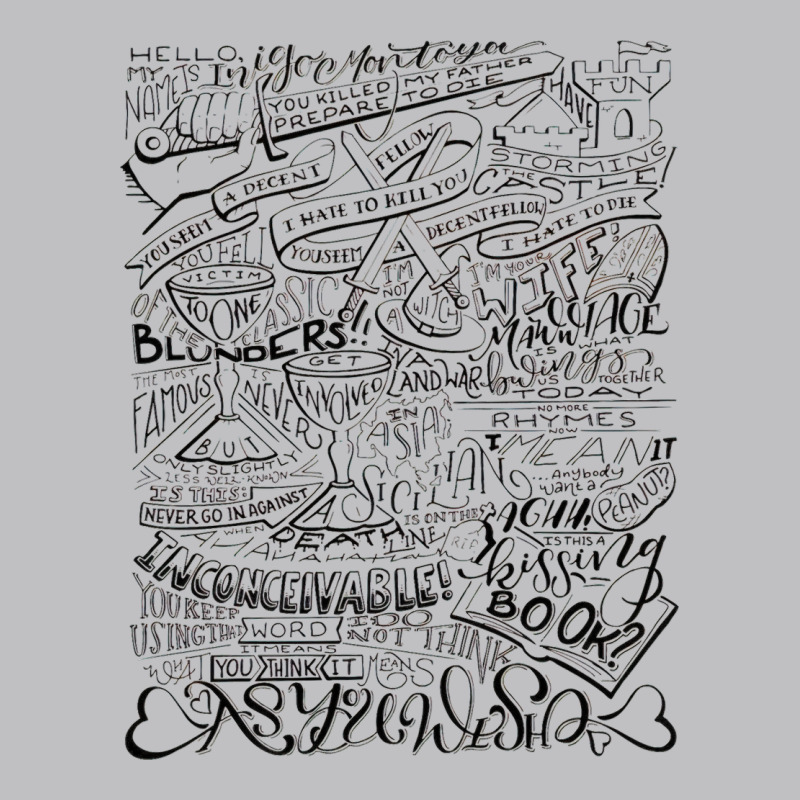 HELLO,
MY NAME IS Inigo Montoya
YOU KILLED MY FATHER
PREPARE TO DIE
HAVE FUN
STORMING
THE
CASTLE!
YOU SEEM A DECENT FELLOW
I HATE TO KILL YOU
YOU SEEM A DECENT FELLOW
I HATE TO DIE
YOU FELL
VICTIM
TO ONE
OF THE CLASSIC
BLUNDERS!!
I'M
NOT
A WITCH
I'M YOUR
WIFE!
MAWWIAGE
IS WHAT
bwings
US TOGETHER
TODAY
THE MOST
FAMOUS IS
NEVER
GET
INVOLVED
IN A
LAND WAR
IN
ASIA
BUT
ONLY SLIGHTLY
LESS WELL-KNOWN
IS THIS:
NEVER GO IN AGAINST
A SICILIAN
WHEN
DEATH IS ON THE
LINE
AHAHAHAHA
RIP
NO MORE
RHYMES
NOW
I MEAN IT
...Anybody
want a
PEANUT?
AGHH!
IS THIS A
kissing
BOOK?
INCONCEIVABLE!
YOU KEEP
USING THAT WORD
I DO
NOT THINK
IT MEANS
WHAT YOU THINK IT MEANS
AS YOU WISH